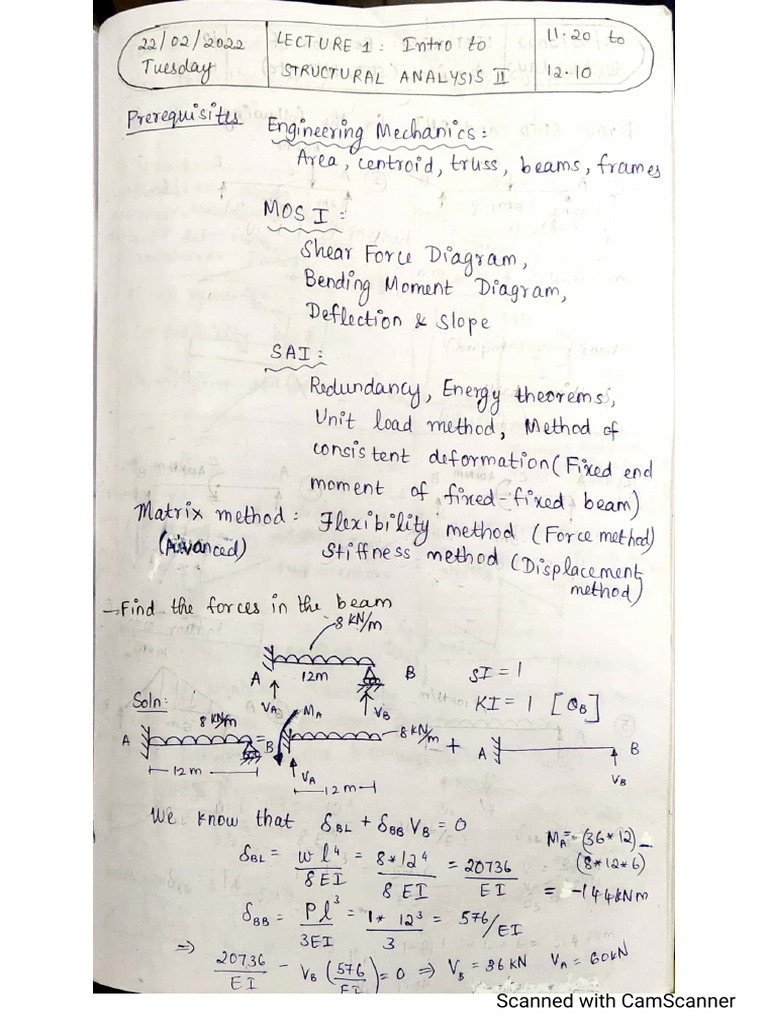 22/02/2022
Tuesday
LECTURE 1: Intro to
STRUCTURAL ANALYSIS II
11.20 to
12.10
Prerequisites
Engineering Mechanics:
Area, centroid, truss, beams, frames
MOS I:
Shear Force Diagram,
Bending Moment Diagram,
Deflection & Slope
SAI:
Redundancy, Energy theorems,
Unit load method, Method of
consistent deformation (Fixed end
moment of fixed-fixed beam)
Matrix method: Flexibility method (Force method)
(Advanced) Stiffness method (Displacement
method)
→Find the forces in the beam
8 KN/m
A 12m B
VA VB
SI = 1
KI = 1 [θB]
Soln:
A 8 KN/m B = MA 8 KN/m + A B
12m VA 12m VB
We know that δBL + δBB VB = 0
δBL = wl⁴/8EI = 8*12⁴/8EI = 20736/EI
MA = (36*12) –
(8*12*6)
= -144kNm
δBB = Pl³/3EI = 1*12³/3 = 576/EI
⇒ 20736/EI - VB (576/EI) = 0 ⇒ VB = 36KN VA = 60KN
Scanned with CamScanner